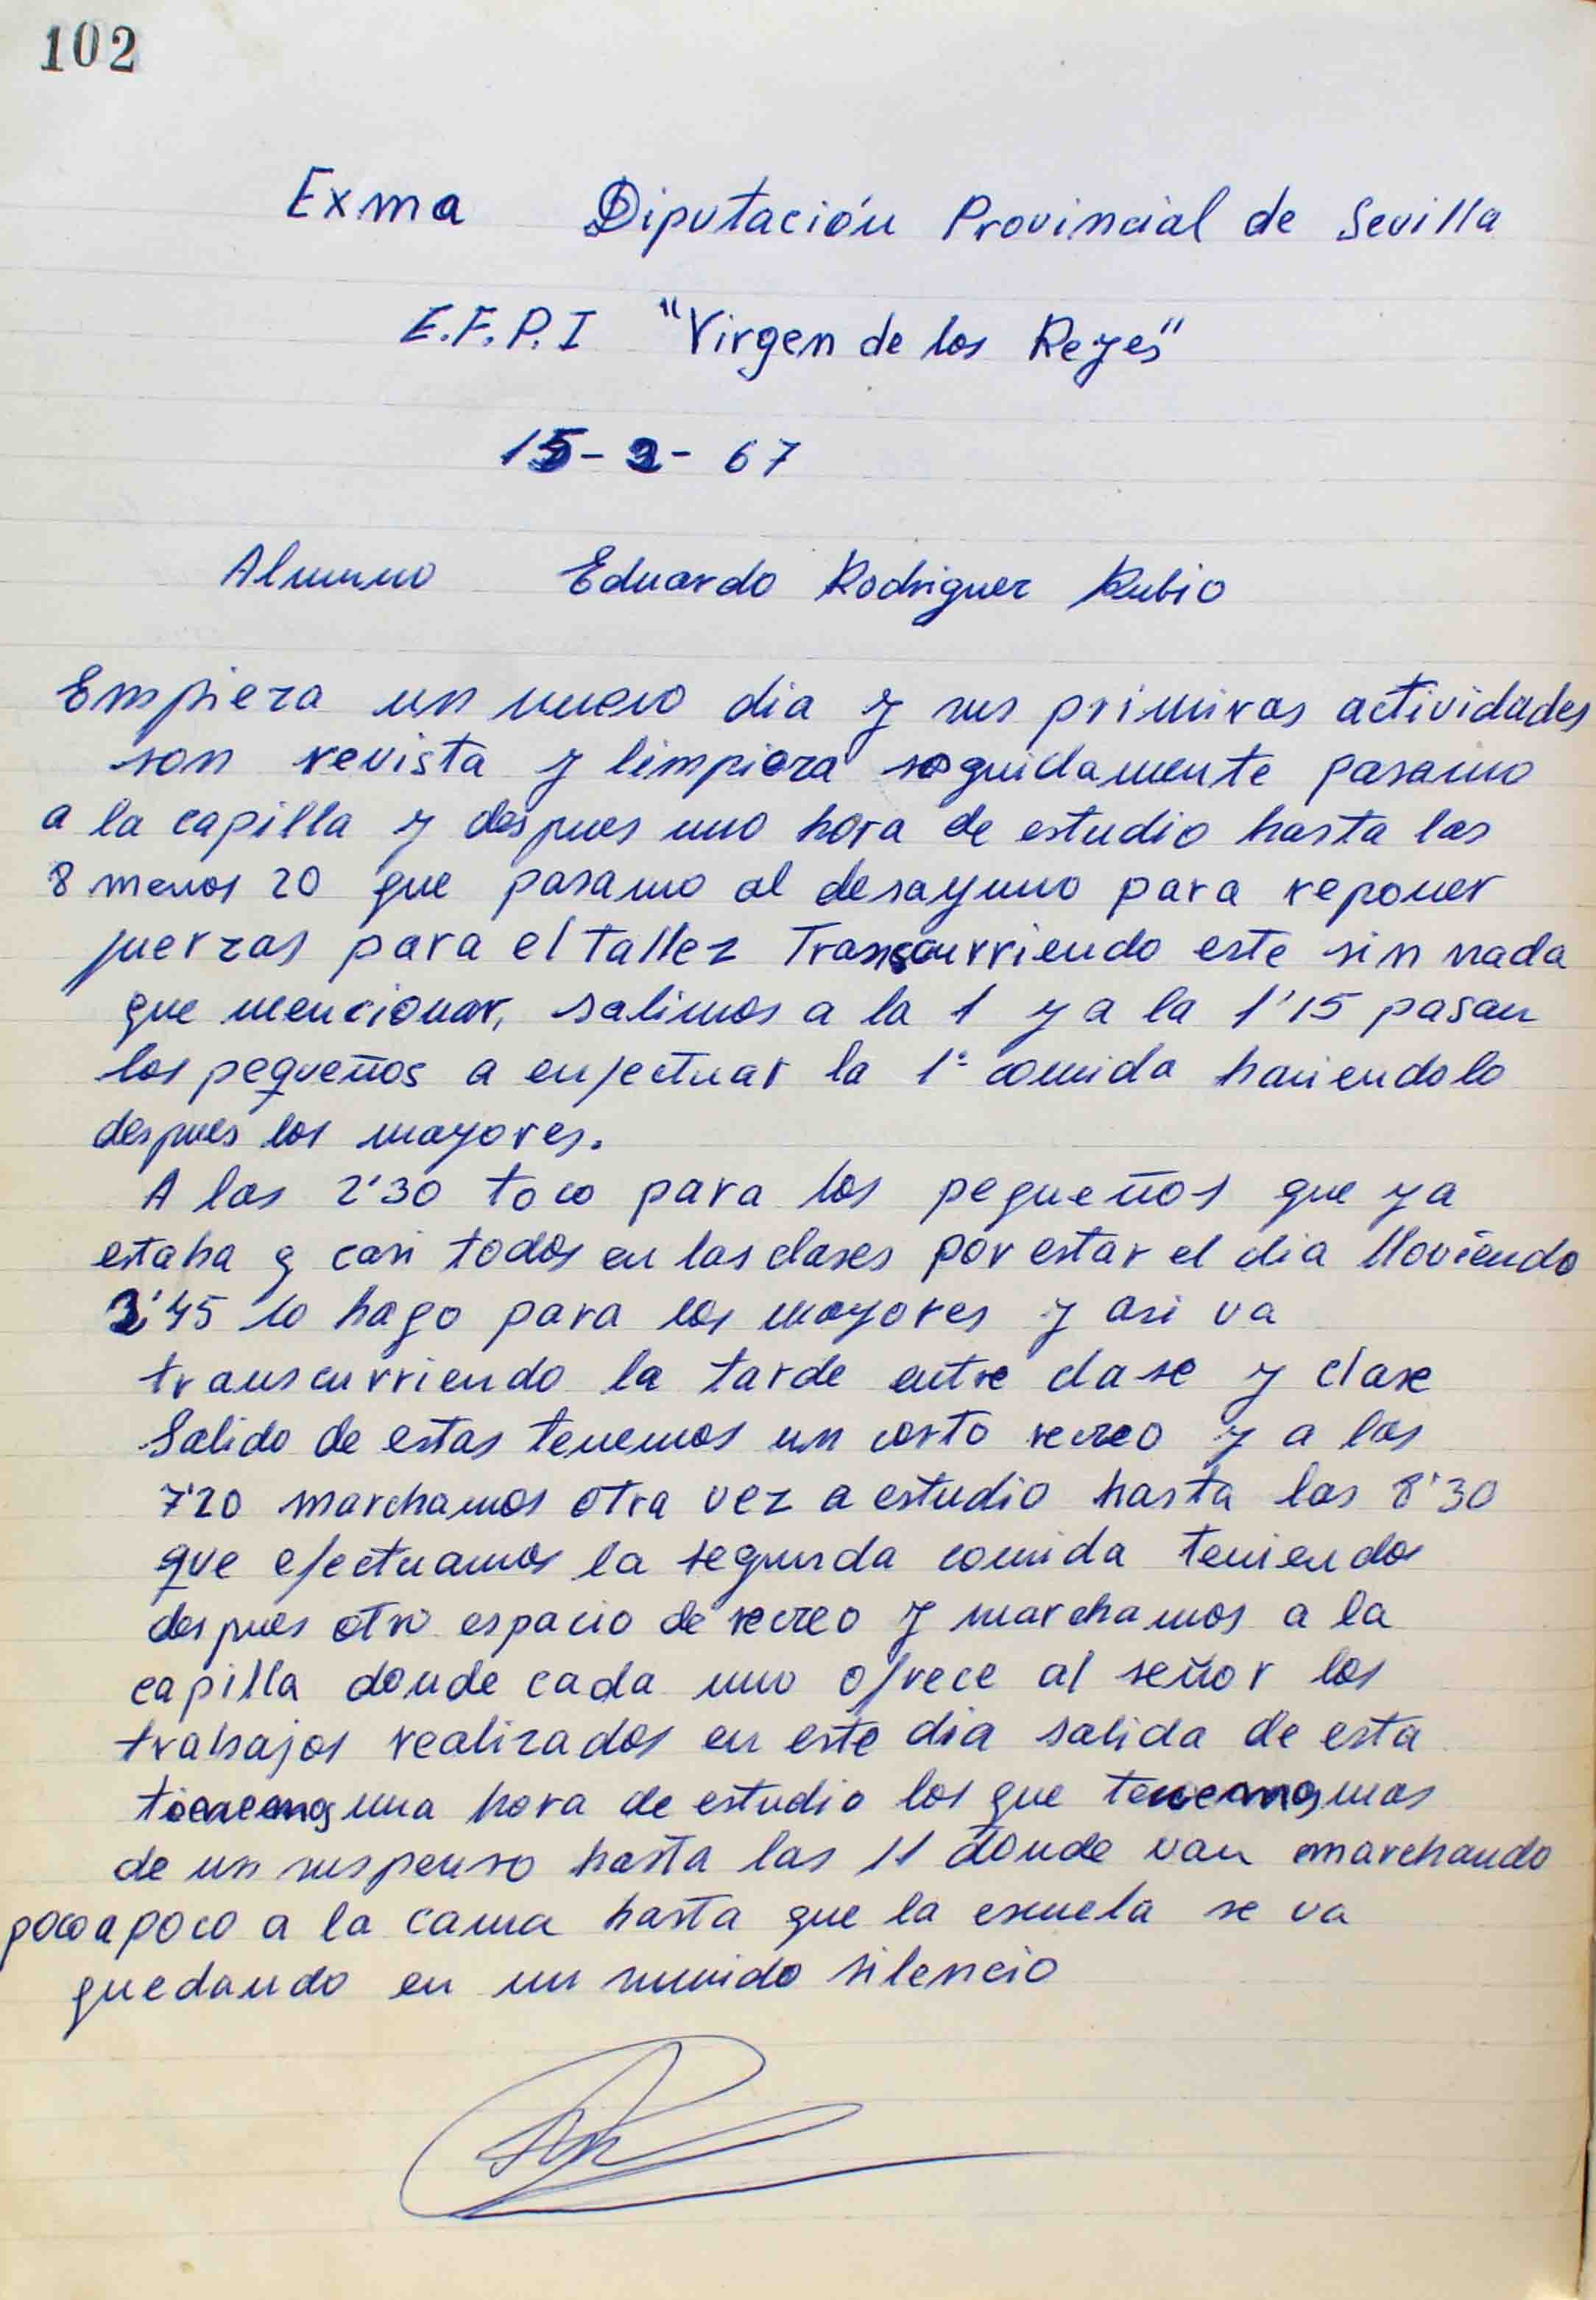 102
Exma Diputación Provincial de Sevilla
E.F.P.I "Virgen de los Reyes"
15-2-67
Alumno Eduardo Rodriguez Rubio
Empieza un nuevo dia y sus primiras actividades
son revista y limpieza seguidamente pasamo
a la capilla y despues uno hora de estudio hasta las
8 menos 20 que pasamo al desayuno para reponer
fuerzas para el taller Transcurriendo este sin nada
que mencionar, salimos a la 1 y a la 1'15 pasan
los pequeños a enfectuar la 1ª comida haciendolo
despues los mayores.
A las 2'30 toco para los pequeños que ya
estaba casi todos en las clases por estar el dia lloviendo
3'45 lo hago para los mayores y asi va
transcurriendo la tarde entre clase y clase
Salido de estas tenemos un corto recreo y a las
7'20 marchamos otra vez a estudio hasta las 8'30
que efectuamos la segunda comida teniendos
despues otro espacio de recreo y marchamos a la
capilla donde cada uno ofrece al señor los
trabajos realizados en este dia salida de esta
una hora de estudio los que tenemos mas
de un suspenso hasta las 11 donde van marchando
poco a poco a la cama hasta que la escuela se va
quedando en un sumido silencio